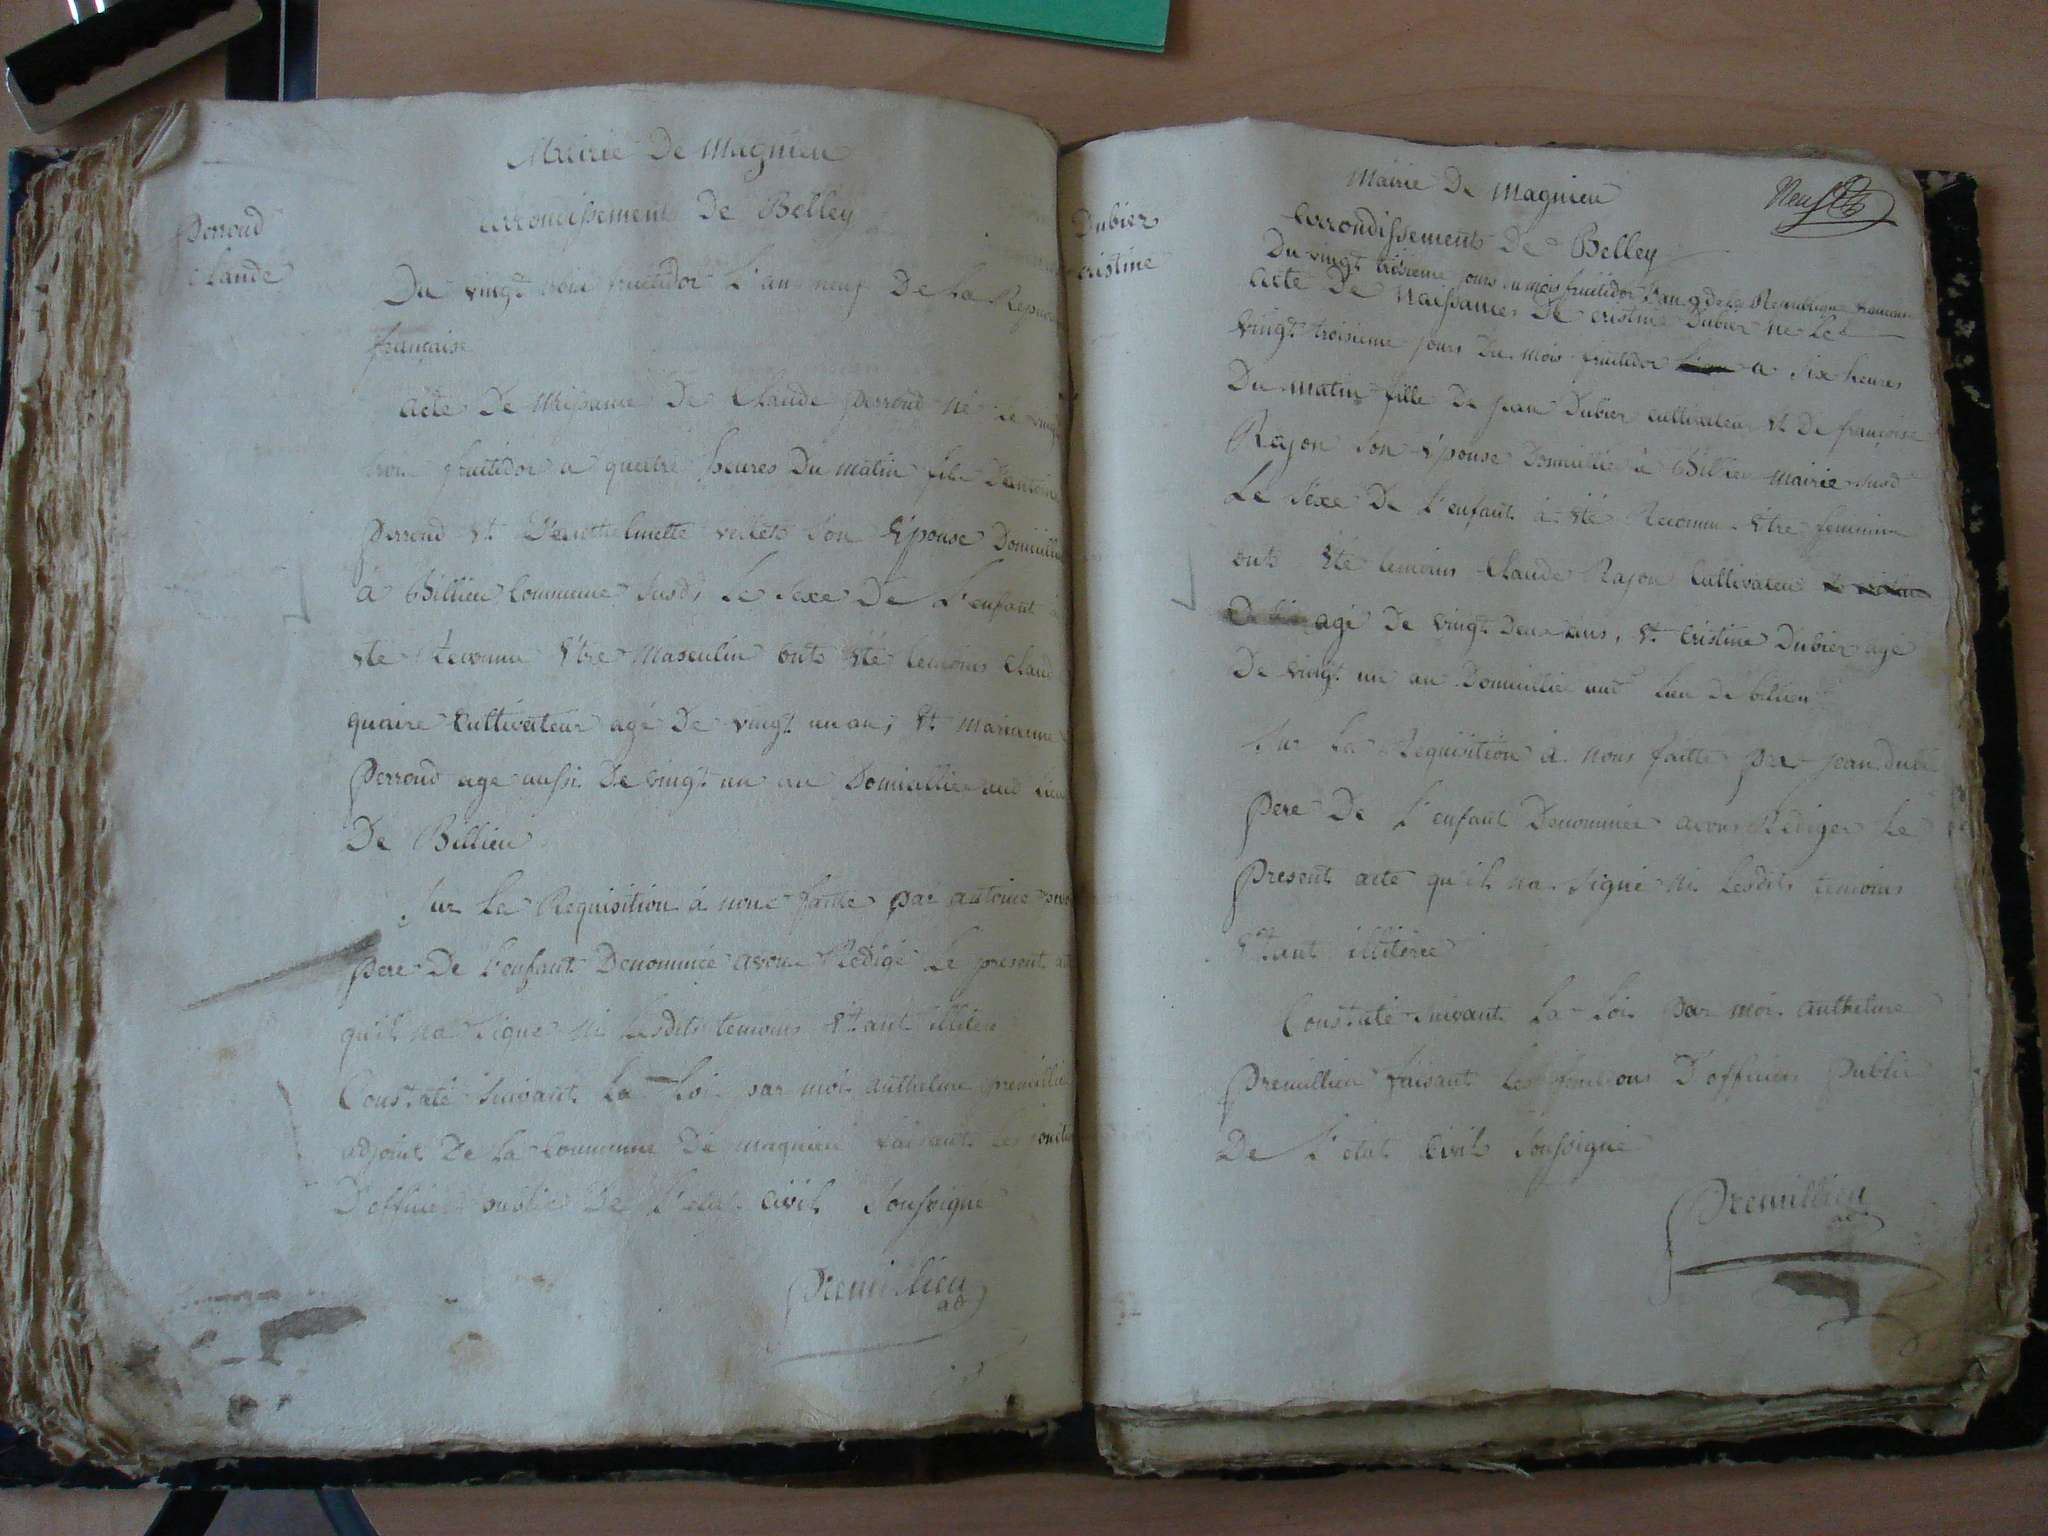 Mairie De Magnieu
arrondissement De Belley
Perroud
Claude
Du vingt trois fruitidor L'an neuf De La Repu
française
acte De Naissance De Claude perroud né Le vingt
trois fruitidor a quattre heures Du matin fils D'antoine
perroud Et son Epouse Domicillié
à Billieu Commune susd. Le sexe De L'enfant à
été Reconnu Etre Masculin onts été temoins Claude
quaire Cultivateur agé De vingt un an, Et marianne
perroud age aussi De vingt un an Domicillié aud lieu
De Billieu
Sur La Requisition à nous faitte par antoine
pere De L'enfant Denommée avons Redigé Le present
qu'il na Signé ni Lesdits temoins Etant illitere
Constaté suivant La Loi par moi anthelme premillieu
adjoint De La Commune De magnieu faisant Les
D'officier public De L'etat Civil Soussigné
Premillieu
ad
Mairie De Magnieu
Neuf
arrondissement De Belley
Dubier
Cristine
Du vingt troisieme jours du mois fruitidor L'an 9 de la Republique francaise
acte De Naissance De Cristine Dubier né Le
vingt troisieme jours Du mois fruitidor a six heures
Du matin fille De jean Dubier Cultivateur Et De françoise
Rajon son Epouse Domicillié à Billieu mairie susd
Le sexe De L'enfant à été Reconnu Etre feminin
onts Eté temoins Claude Rajon Cultivateur
agé De vingt Deux ans, Et Cristine Dubier agé
De vingt un an Domicillié aud lieu De bilieu
Sur La Requisition à nous faitte par jean Dubi
pere De L'enfant Denommée avons Rediger Le
Present acte qu'il na Signé ni Lesdits temoins
Etant illiterée
Constaté suivant La Loi par moi anthelme
premillieu faisant Les fonctions D'officier Public
De L'etat Civil Soussigné
Premillieu
ad